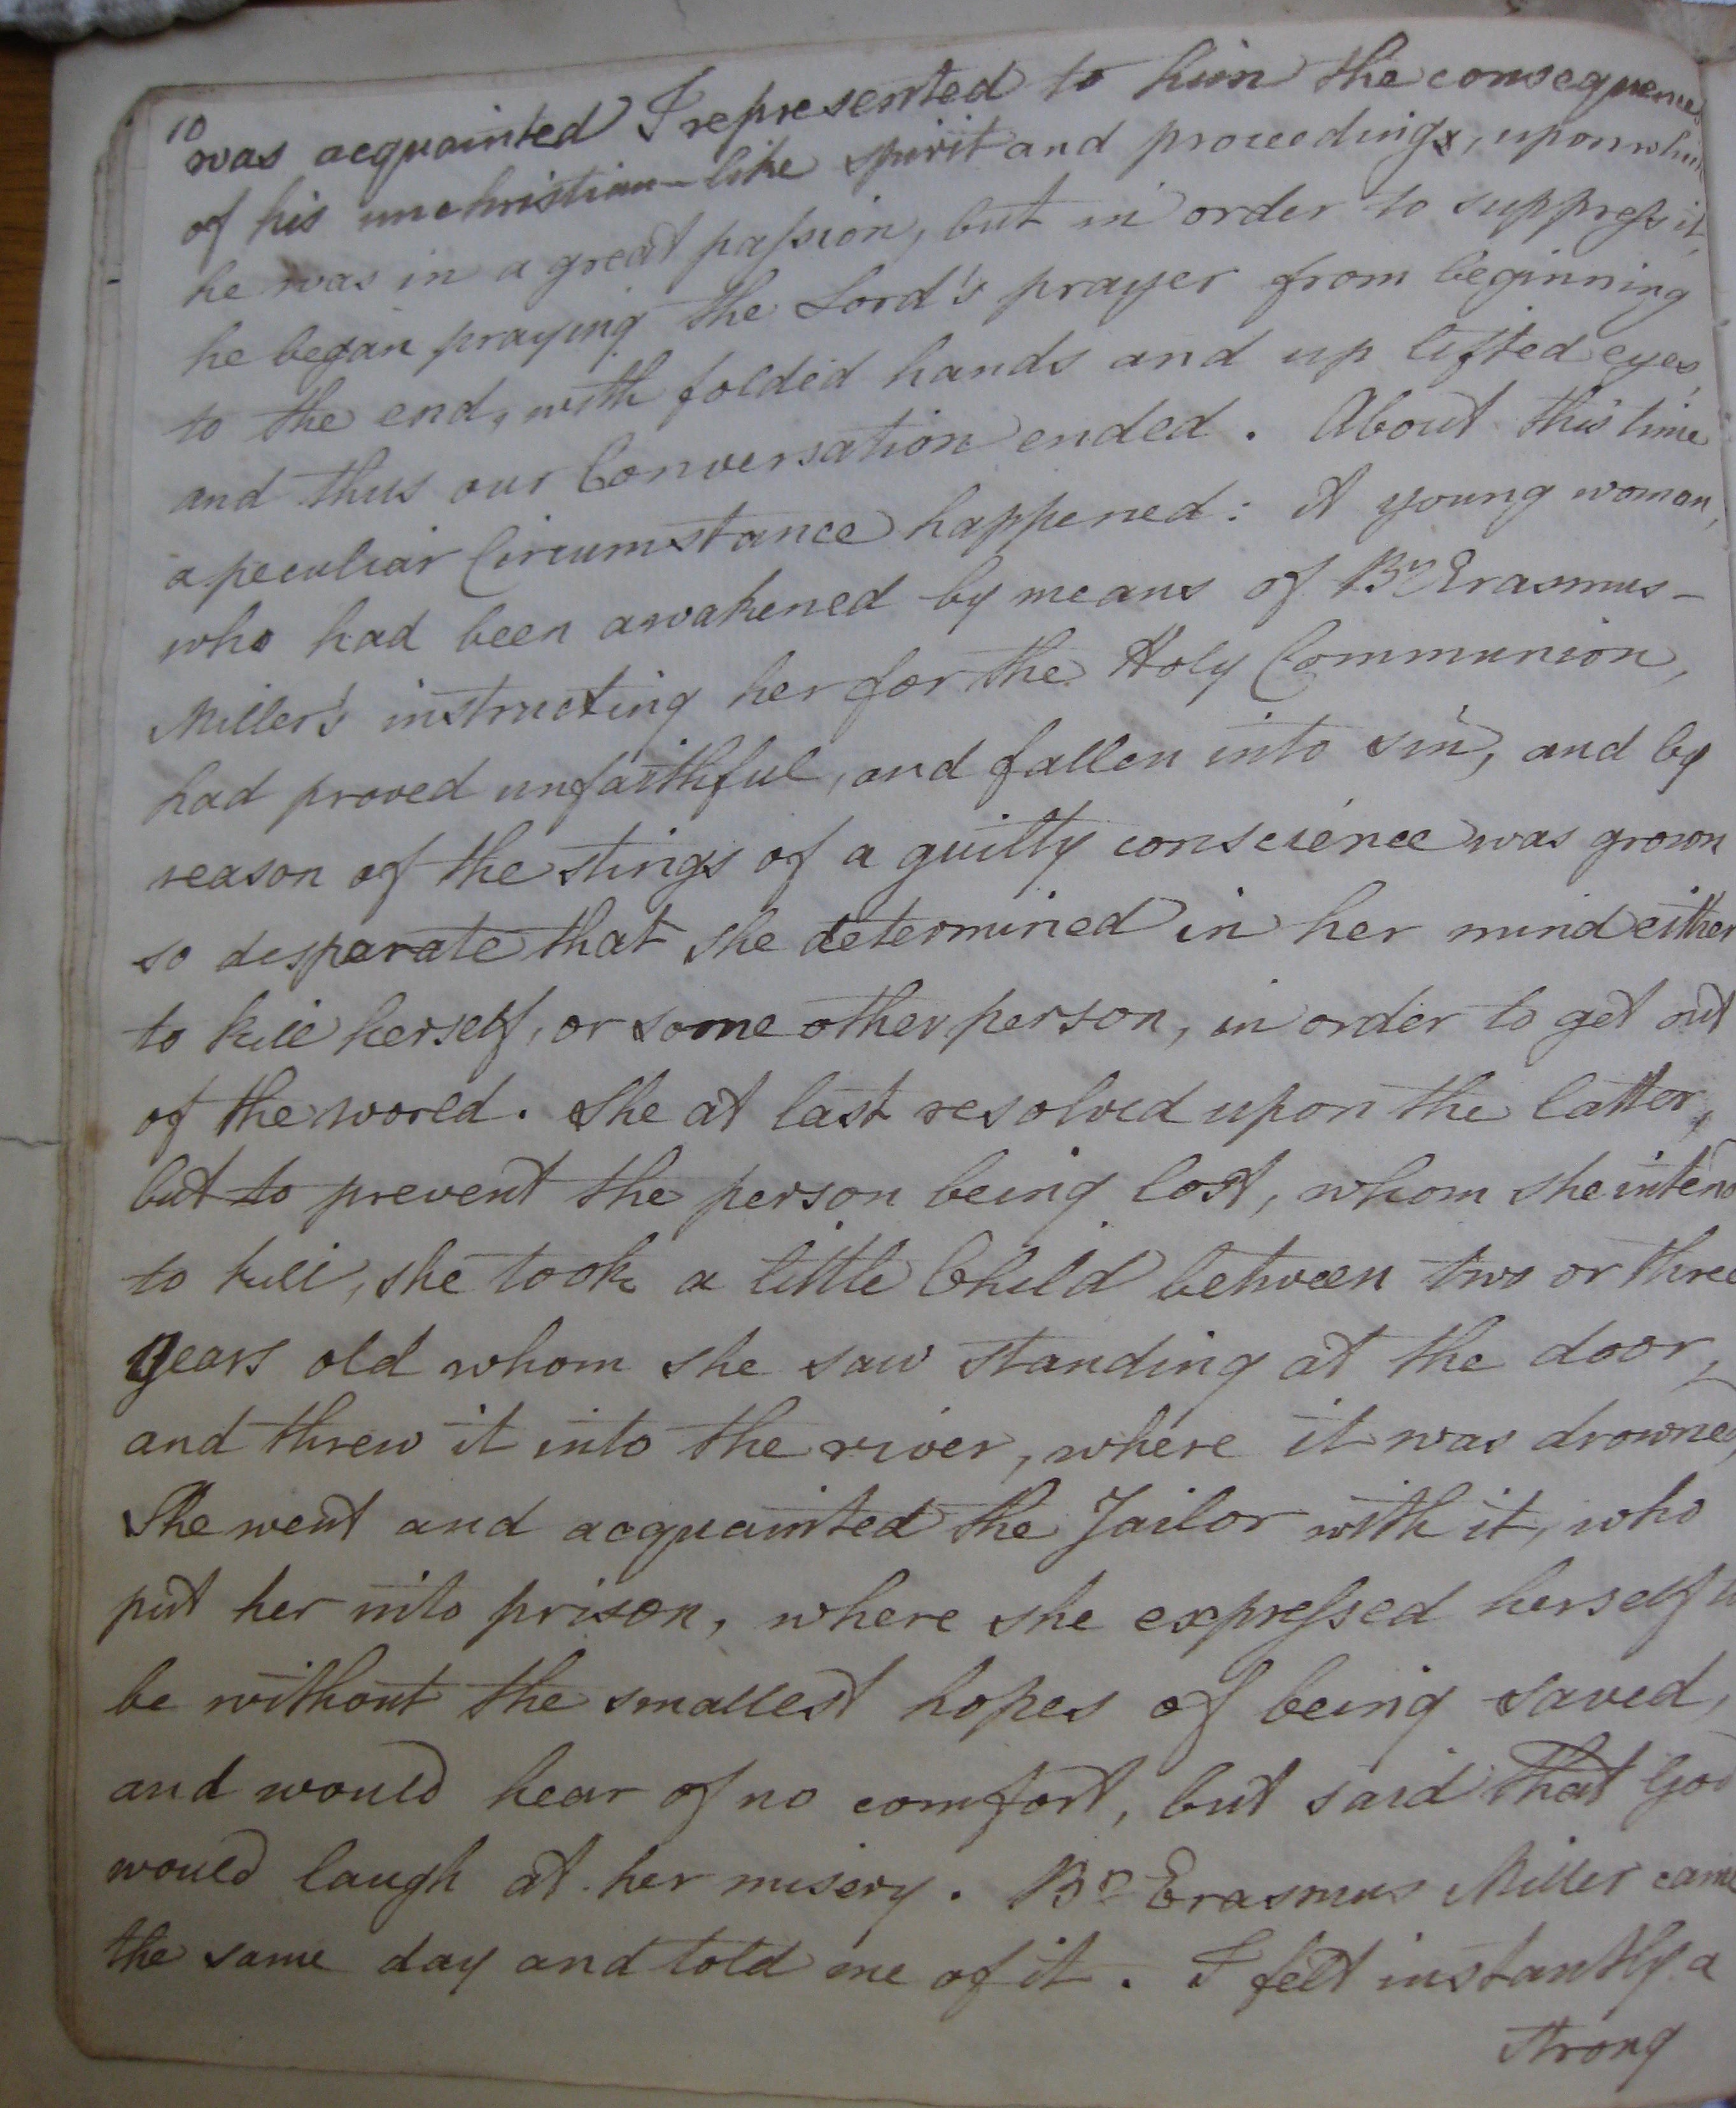 10
was acquainted I represented to him the consequences
of his unchristian-like spirit and proceedings, upon which
he was in a great paſsion, but in order to suppreſs it,
he began praying the Lord's prayer from beginning
to the end, with folded hands and up lifted eyes,
and thus our Conversation ended. About this time
a peculiar Circumstance happened: A young woman,
who had been awakened by means of Br Erasmus-
Miller's instructing her for the Holy Communion,
had proved unfaithful, and fallen into sin, and by
reason of the stings of a guilty conscience was grown
so desparate that she determined in her mind either
to kill herself, or some other person, in order to get out
of the world. She at last resolved upon the latter,
but to prevent the person being lost, whom she inten
to kill, she took a little Child between two or three
years old whom she saw standing at the door,
and threw it into the river, where it was drowned,
She went and acquainted the Jailor with it, who
put her into prison, where she expreſsed herself to
be without the smallest hopes of being saved,
and would hear of no comfort, but said that God
would laugh at her misery. Br Erasmus Miller came
the same day and told me of it. I felt instantly a
strong